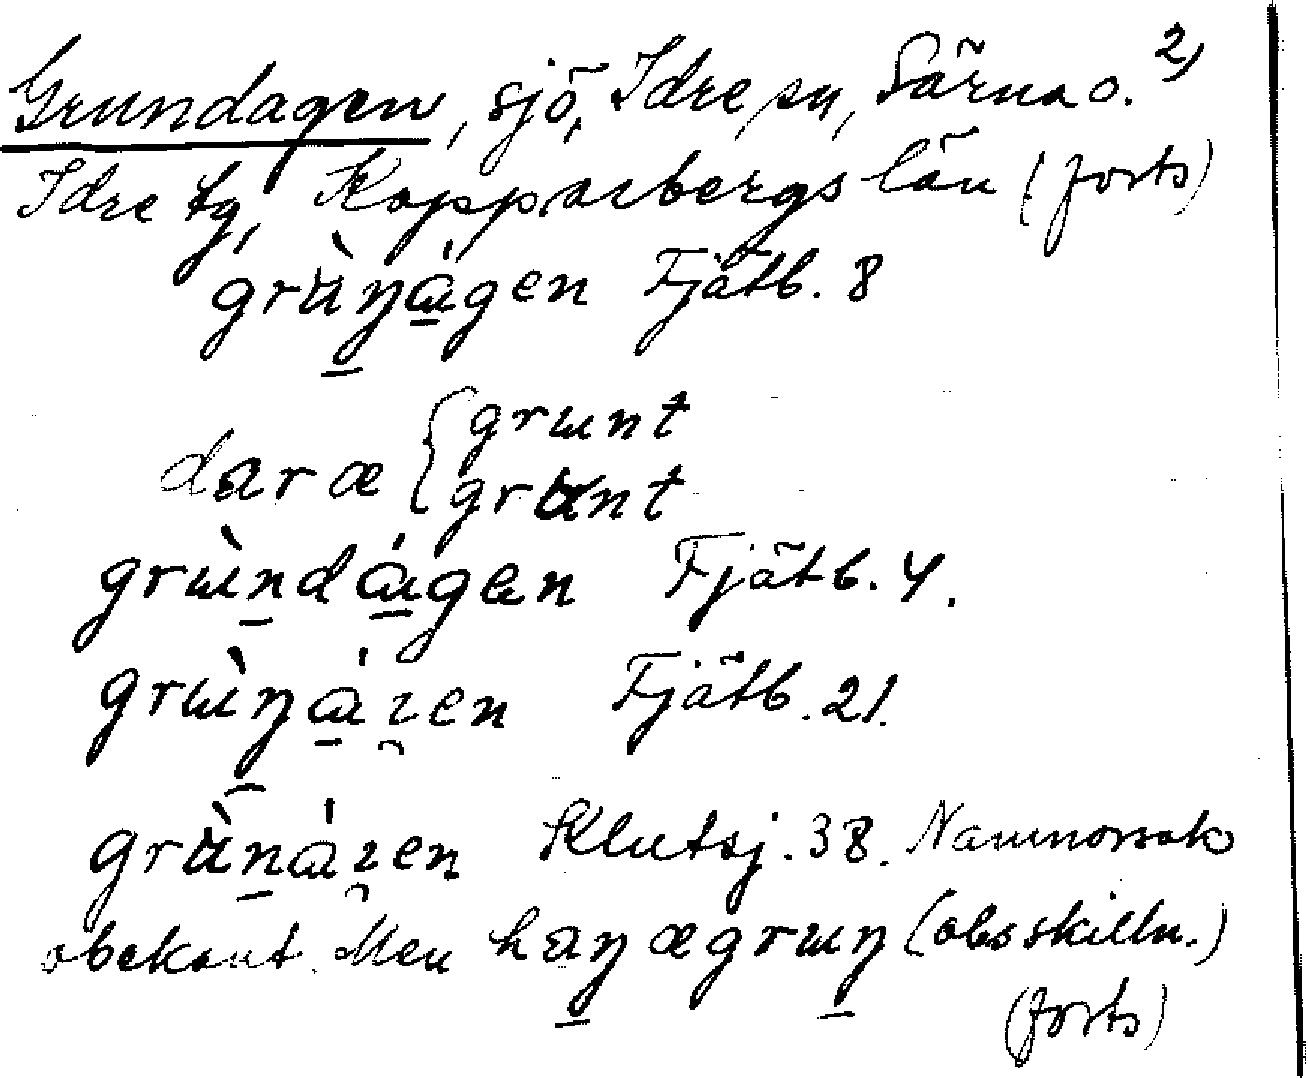 Grundagen, sjö, Idre sn, Särna o. 2)
Idre tg, Kopparbergs län (forts)
grɯ̀ŋágen Fjätb. 8
dar æ { grɯnt
grunt
grɯ̀ndágen Fjätb. 4.
grɯ̀ŋáɀen Fjätb. 21.
grùnáɀen Klutsj. 38. Namnorsak
obekant. Men haŋ æ grɯŋ (obs skilln.)
(forts)